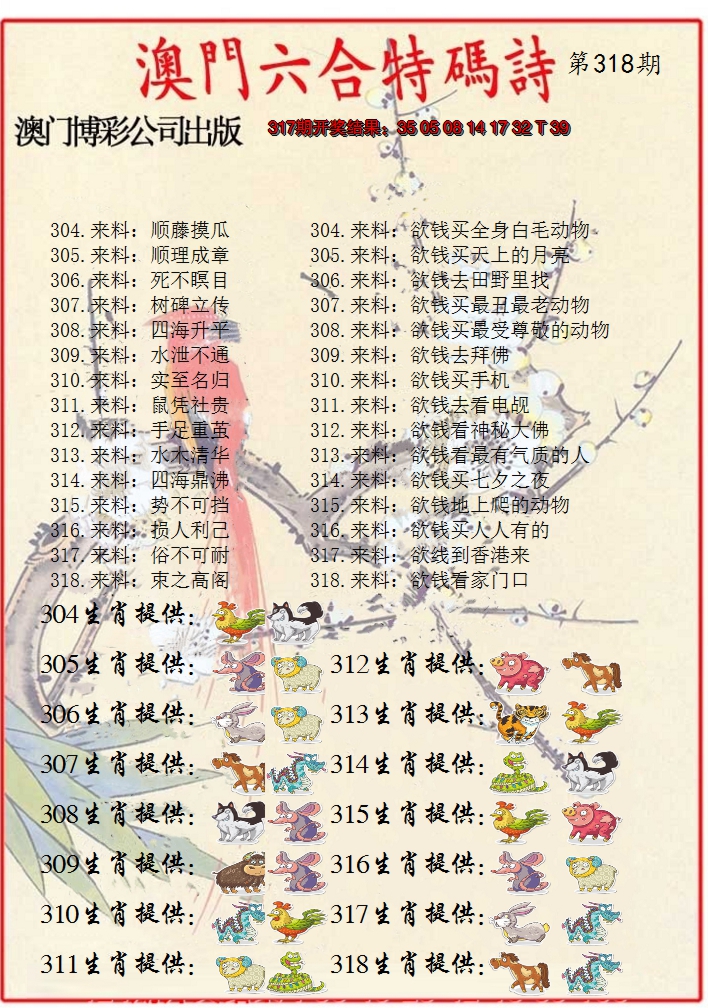 澳門六合特碼詩 第318期
澳门博彩公司出版 317期开奖结果：35 05 08 14 17 32 T 39
304.来料：顺藤摸瓜 304.来料：欲钱买全身白毛动物
305.来料：顺理成章 305.来料：欲钱买天上的月亮
306.来料：死不瞑目 306.来料：欲钱去田野里找
307.来料：树碑立传 307.来料：欲钱买最丑最老动物
308.来料：四海升平 308.来料：欲钱买最受尊敬的动物
309.来料：水泄不通 309.来料：欲钱去拜佛
310.来料：实至名归 310.来料：欲钱买手机
311.来料：鼠凭社贵 311.来料：欲钱去看电觇
312.来料：手足重茧 312.来料：欲钱看神秘大佛
313.来料：水木清华 313.来料：欲钱看最有气质的人
314.来料：四海鼎沸 314.来料：欲钱买七夕之夜
315.来料：势不可挡 315.来料：欲钱地上爬的动物
316.来料：损人利己 316.来料：欲钱买人人有的
317.来料：俗不可耐 317.来料：欲线到香港来
318.来料：束之高阁 318.来料：欲钱看家门口
304生肖提供：
305生肖提供： 312生肖提供：
306生肖提供： 313生肖提供：
307生肖提供： 314生肖提供：
308生肖提供： 315生肖提供：
309生肖提供： 316生肖提供：
310生肖提供： 317生肖提供：
311生肖提供： 318生肖提供：